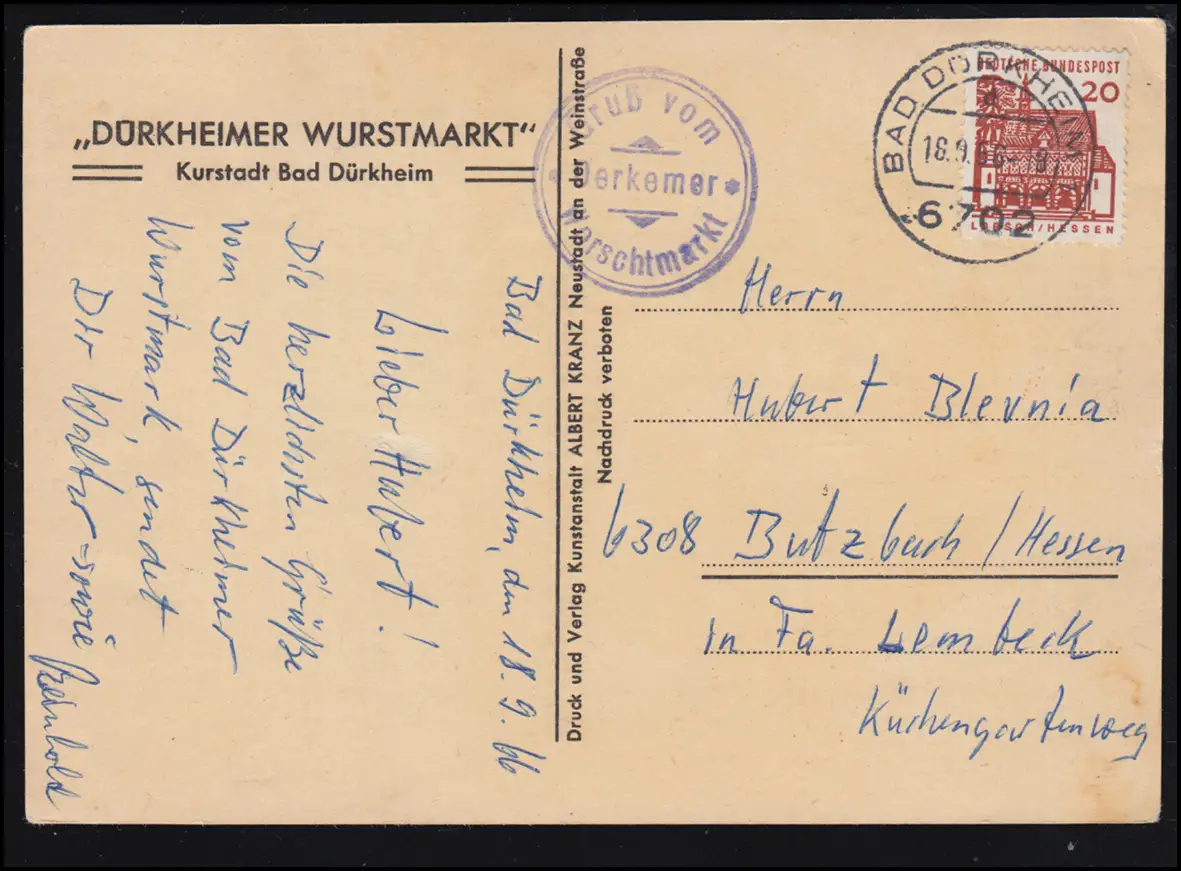 „DÜRKHEIMER WURSTMARKT"
Kurstadt Bad Dürkheim
Bad Dürkheim, den 18.9.66
Lieber Hubert!
Die herzlichsten Grüße
vom Bad Dürkheimer
Wurstmark, sendet
Dir Walter sowie
Reinhold
Druck und Verlag Kunstanstalt ALBERT KRANZ Neustadt an der Weinstraße
Nachdruck verboten
Gruß vom
Derkemer
Worschtmarkt
BAD DÜRKHEIM
d
18.9.66
6702
DEUTSCHE BUNDESPOST
20
LORSCH/HESSEN
Herrn
Hubert Blevnia
6308 Butzbach/Hessen
in Fa. Lembeck
Küchengartenweg